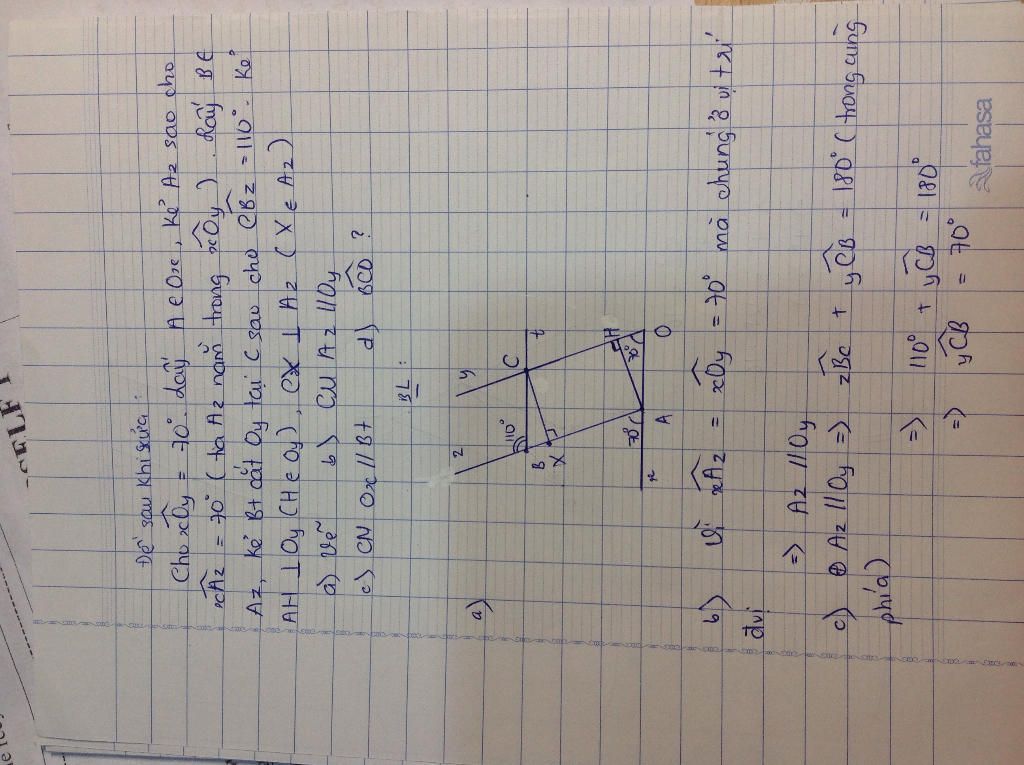 SELF
Đề sau khi sửa :
Cho xOy = 70°. Lấy A ∈ Ox, Kẻ Az sao cho
xAz = 70° (tia Az nằm trong xOy). Lấy B ∈
Az, kẻ Bt cắt Oy tại C sao cho CBz = 110°. Kẻ
AH ⊥ Oy (H ∈ Oy), CX ⊥ Az (X ∈ Az)
a) Vẽ b) CM Az // Oy
c) CM Ox // Bt d) BCO ?
BL :
a)
z y
110°
B C t
X
H
70° 70°
x A O
b) Vì xAz = xOy = 70° mà chúng ở vị trí
đvị
=> Az // Oy
c) ⊕ Az // Oy => zBc + yCB = 180° (trong cùng
phía)
=> 110° + yCB = 180°
=> yCB = 70°
fahasa